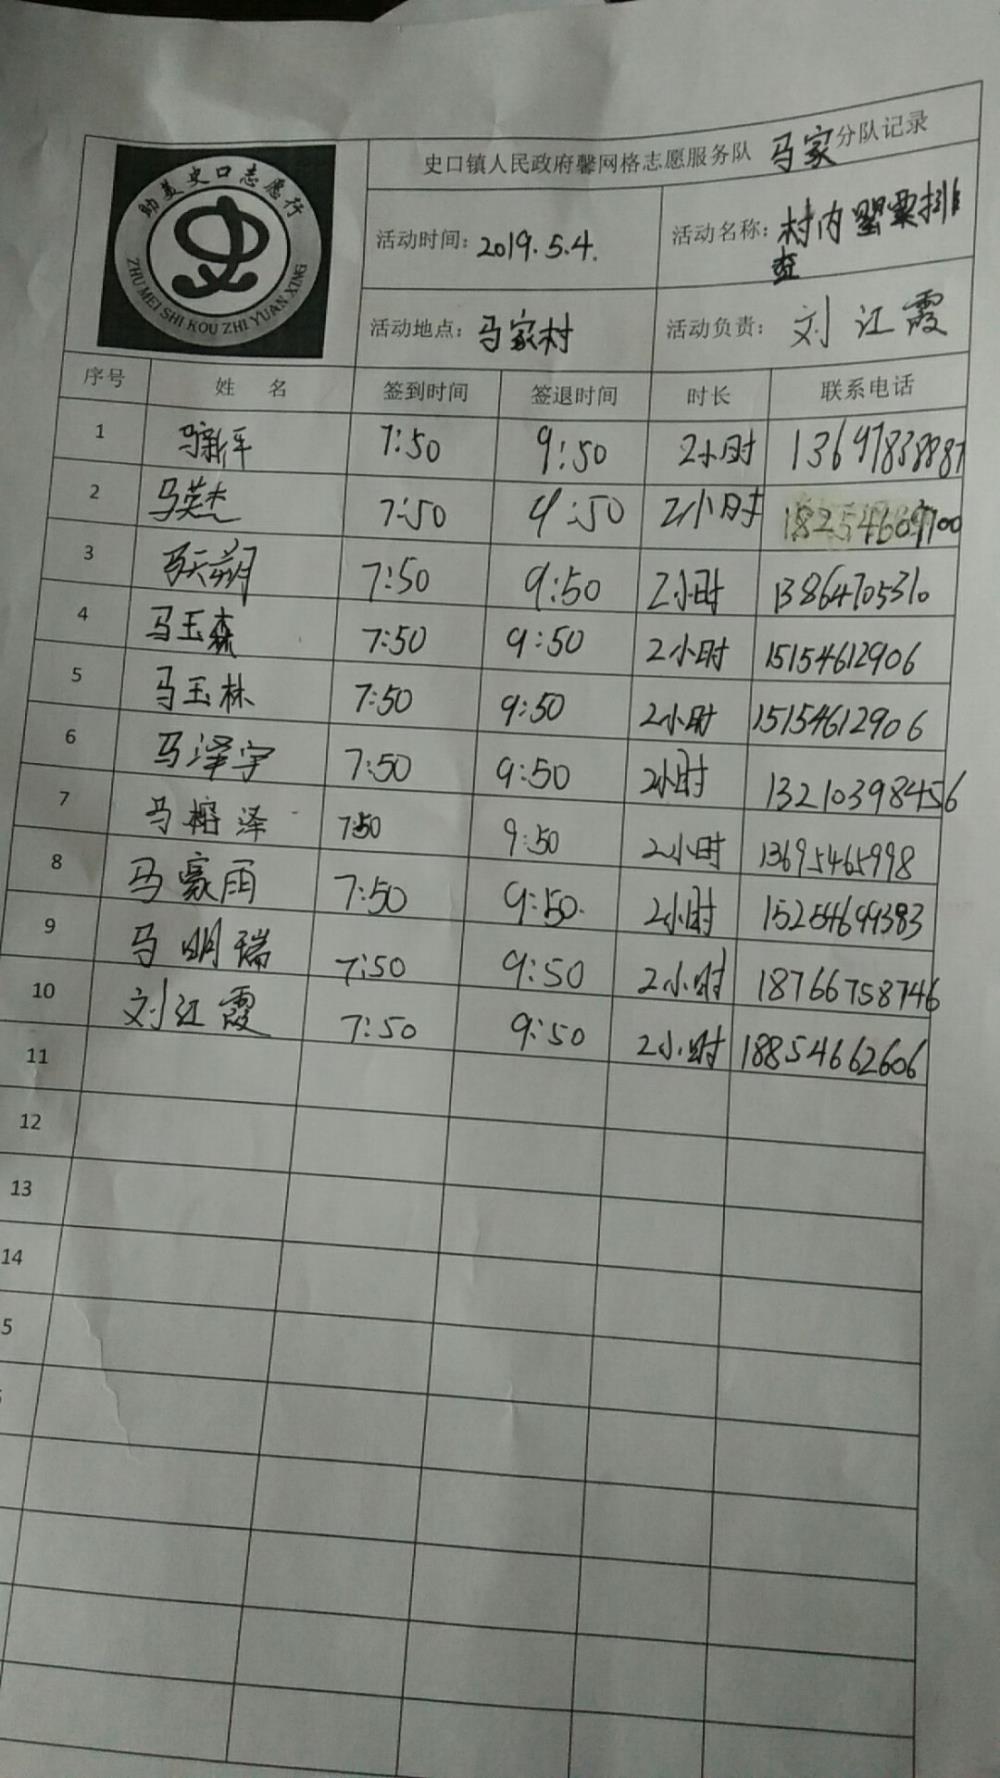 助美史口志愿行
ZHU MEI SHI KOU ZHI YUAN XING
史口镇人民政府馨网格志愿服务队 马家 分队记录
活动时间：2019.5.4. 活动名称：村内罂粟排查
活动地点：马家村 活动负责：刘江霞
序号 姓名 签到时间 签退时间 时长 联系电话
1 马新平 7:50 9:50 2小时 13697838887
2 马英杰 7:50 9:50 2小时 18254609700
3 马天朔 7:50 9:50 2小时 13864705310
4 马玉森 7:50 9:50 2小时 15154612906
5 马玉林 7:50 9:50 2小时 15154612906
6 马泽宇 7:50 9:50 2小时 13210398456
7 马榕泽 7:50 9:50 2小时 13695465998
8 马豪雨 7:50 9:50. 2小时 15254699383
9 马明瑞 7:50 9:50 2小时 18766758746
10 刘江霞 7:50 9:50 2小时 18854662606
11
12
13
14
5